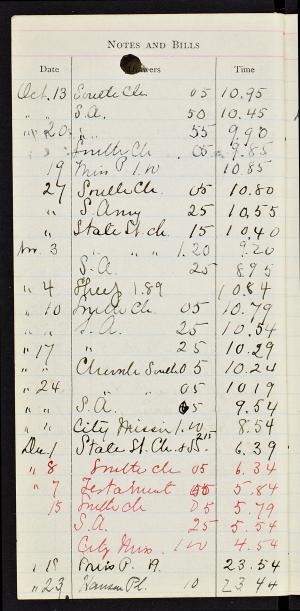 NOTES AND BILLS
Date Drawers Time
Oct. 13 South Ch 05 10.95
" " S.A. 50 10.45
" 20 " " 55 9.90
" South Ch. 05 9.85
19 Miss P. 1.00 10.85
27 South Ch. 05 10.80
" S. Army 25 10,55
" State St. ch. 15 10,40
Nov. 3 " " " 1.20 9.20
S.A. 25 895
" 4 1.89 10.84
" 10 South Ch. 05 10.79
" " S.A. 25 10.54
" 17 " 25 10.29
" " Church South 05 10.24
" 24 " " 05 1019
" " S.A. 65 9.54
" " City Mission 1.00 8.54
Dec 1 State St. Ch. 2.15 6.39
" 8 South ch 05 6.34
" 7 Testament 50 5.84
15 South ch 05 5.79
S.A. 25 5.54
City Miss. 1.00 4.54
" 18 Miss P. 23.54
" 23 Hanson Pl. 10 23.44